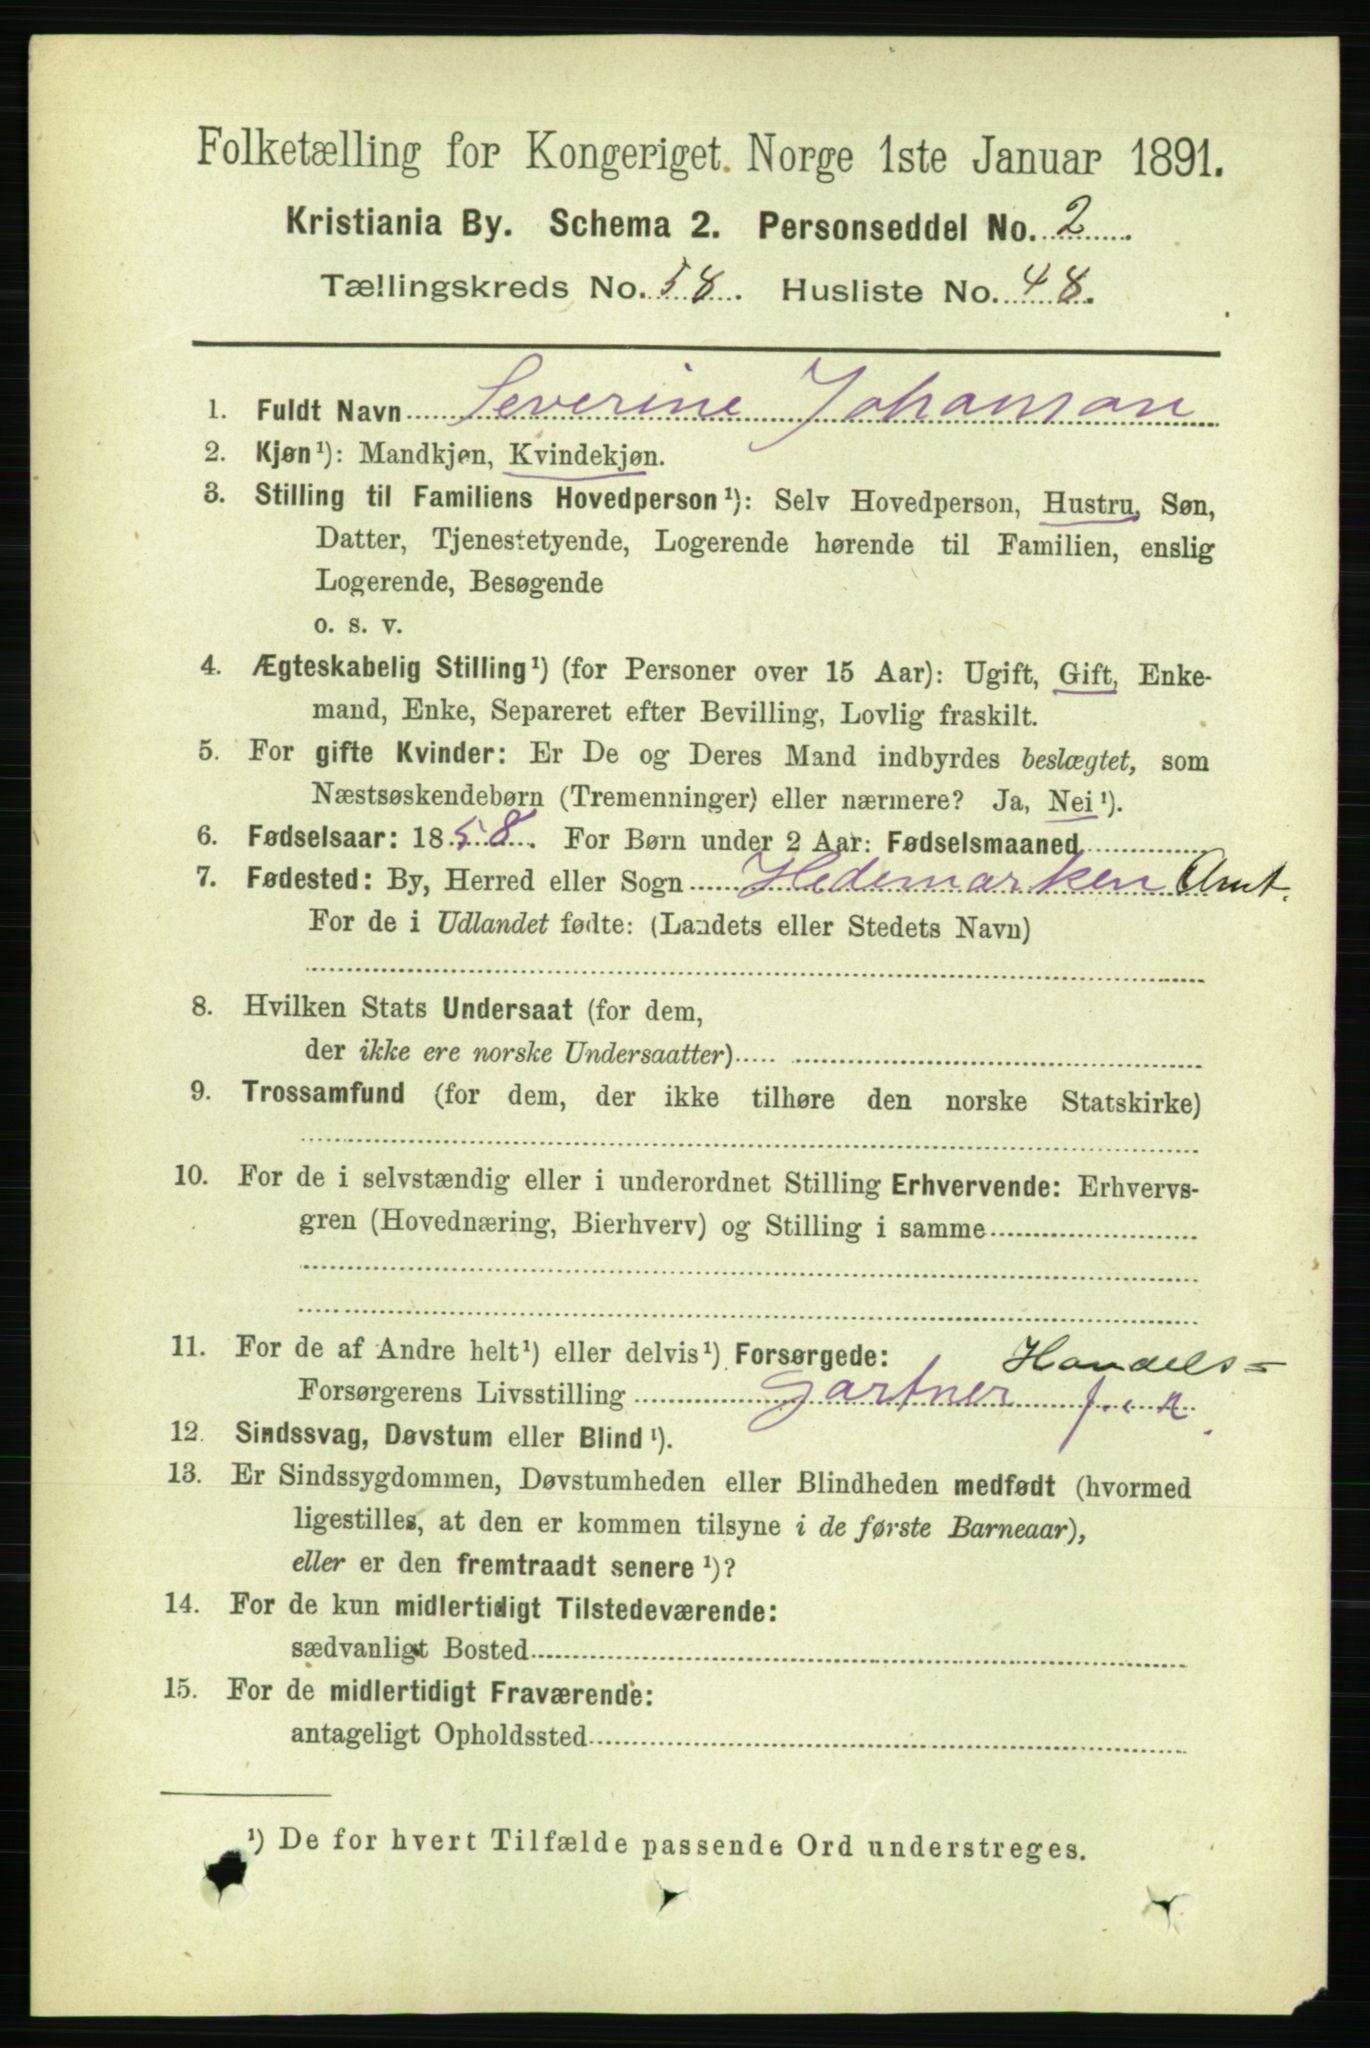 Folketælling for Kongeriget Norge 1ste Januar 1891.
Kristiania By. Schema 2. Personseddel No. 2
Tællingskreds No. 58. Husliste No. 48.
1. Fuldt Navn Severine Johanson
2. Kjøn¹): Mandkjøn, Kvindekjøn.
3. Stilling til Familiens Hovedperson¹): Selv Hovedperson, Hustru, Søn,
Datter, Tjenestetyende, Logerende hørende til Familien, enslig
Logerende, Besøgende
o. s. v.
4. Ægteskabelig Stilling¹) (for Personer over 15 Aar): Ugift, Gift, Enke-
mand, Enke, Separeret efter Bevilling, Lovlig fraskilt.
5. For gifte Kvinder: Er De og Deres Mand indbyrdes beslægtet, som
Næstsøskendebørn (Tremenninger) eller nærmere? Ja, Nei¹).
6. Fødselsaar: 1858. For Børn under 2 Aar: Fødselsmaaned
7. Fødested: By, Herred eller Sogn Hedemarken Amt.
For de i Udlandet fødte: (Landets eller Stedets Navn)
8. Hvilken Stats Undersaat (for dem,
der ikke ere norske Undersaatter)
9. Trossamfund (for dem, der ikke tilhøre den norske Statskirke)
10. For de i selvstændig eller i underordnet Stilling Erhvervende: Erhvervs-
gren (Hovednæring, Bierhverv) og Stilling i samme
11. For de af Andre helt¹) eller delvis¹) Forsørgede: Handels=
Forsørgerens Livsstilling gartner
12. Sindssvag, Døvstum eller Blind¹).
13. Er Sindssygdommen, Døvstumheden eller Blindheden medfødt (hvormed
ligestilles, at den er kommen tilsyne i de første Barneaar),
eller er den fremtraadt senere¹)?
14. For de kun midlertidigt Tilstedeværende:
sædvanligt Bosted
15. For de midlertidigt Fraværende:
antageligt Opholdssted
¹) De for hvert Tilfælde passende Ord understreges.